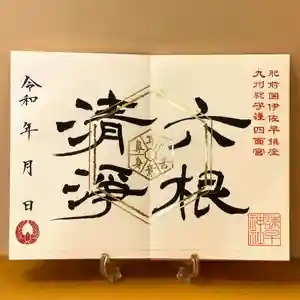 肥前国伊佐早鎮座
九州総守護四面宮
六根
清浄
令和 年 月 日
諫早
神社